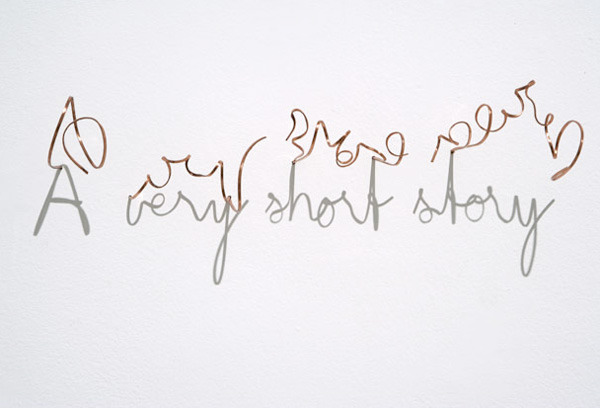 A very short story